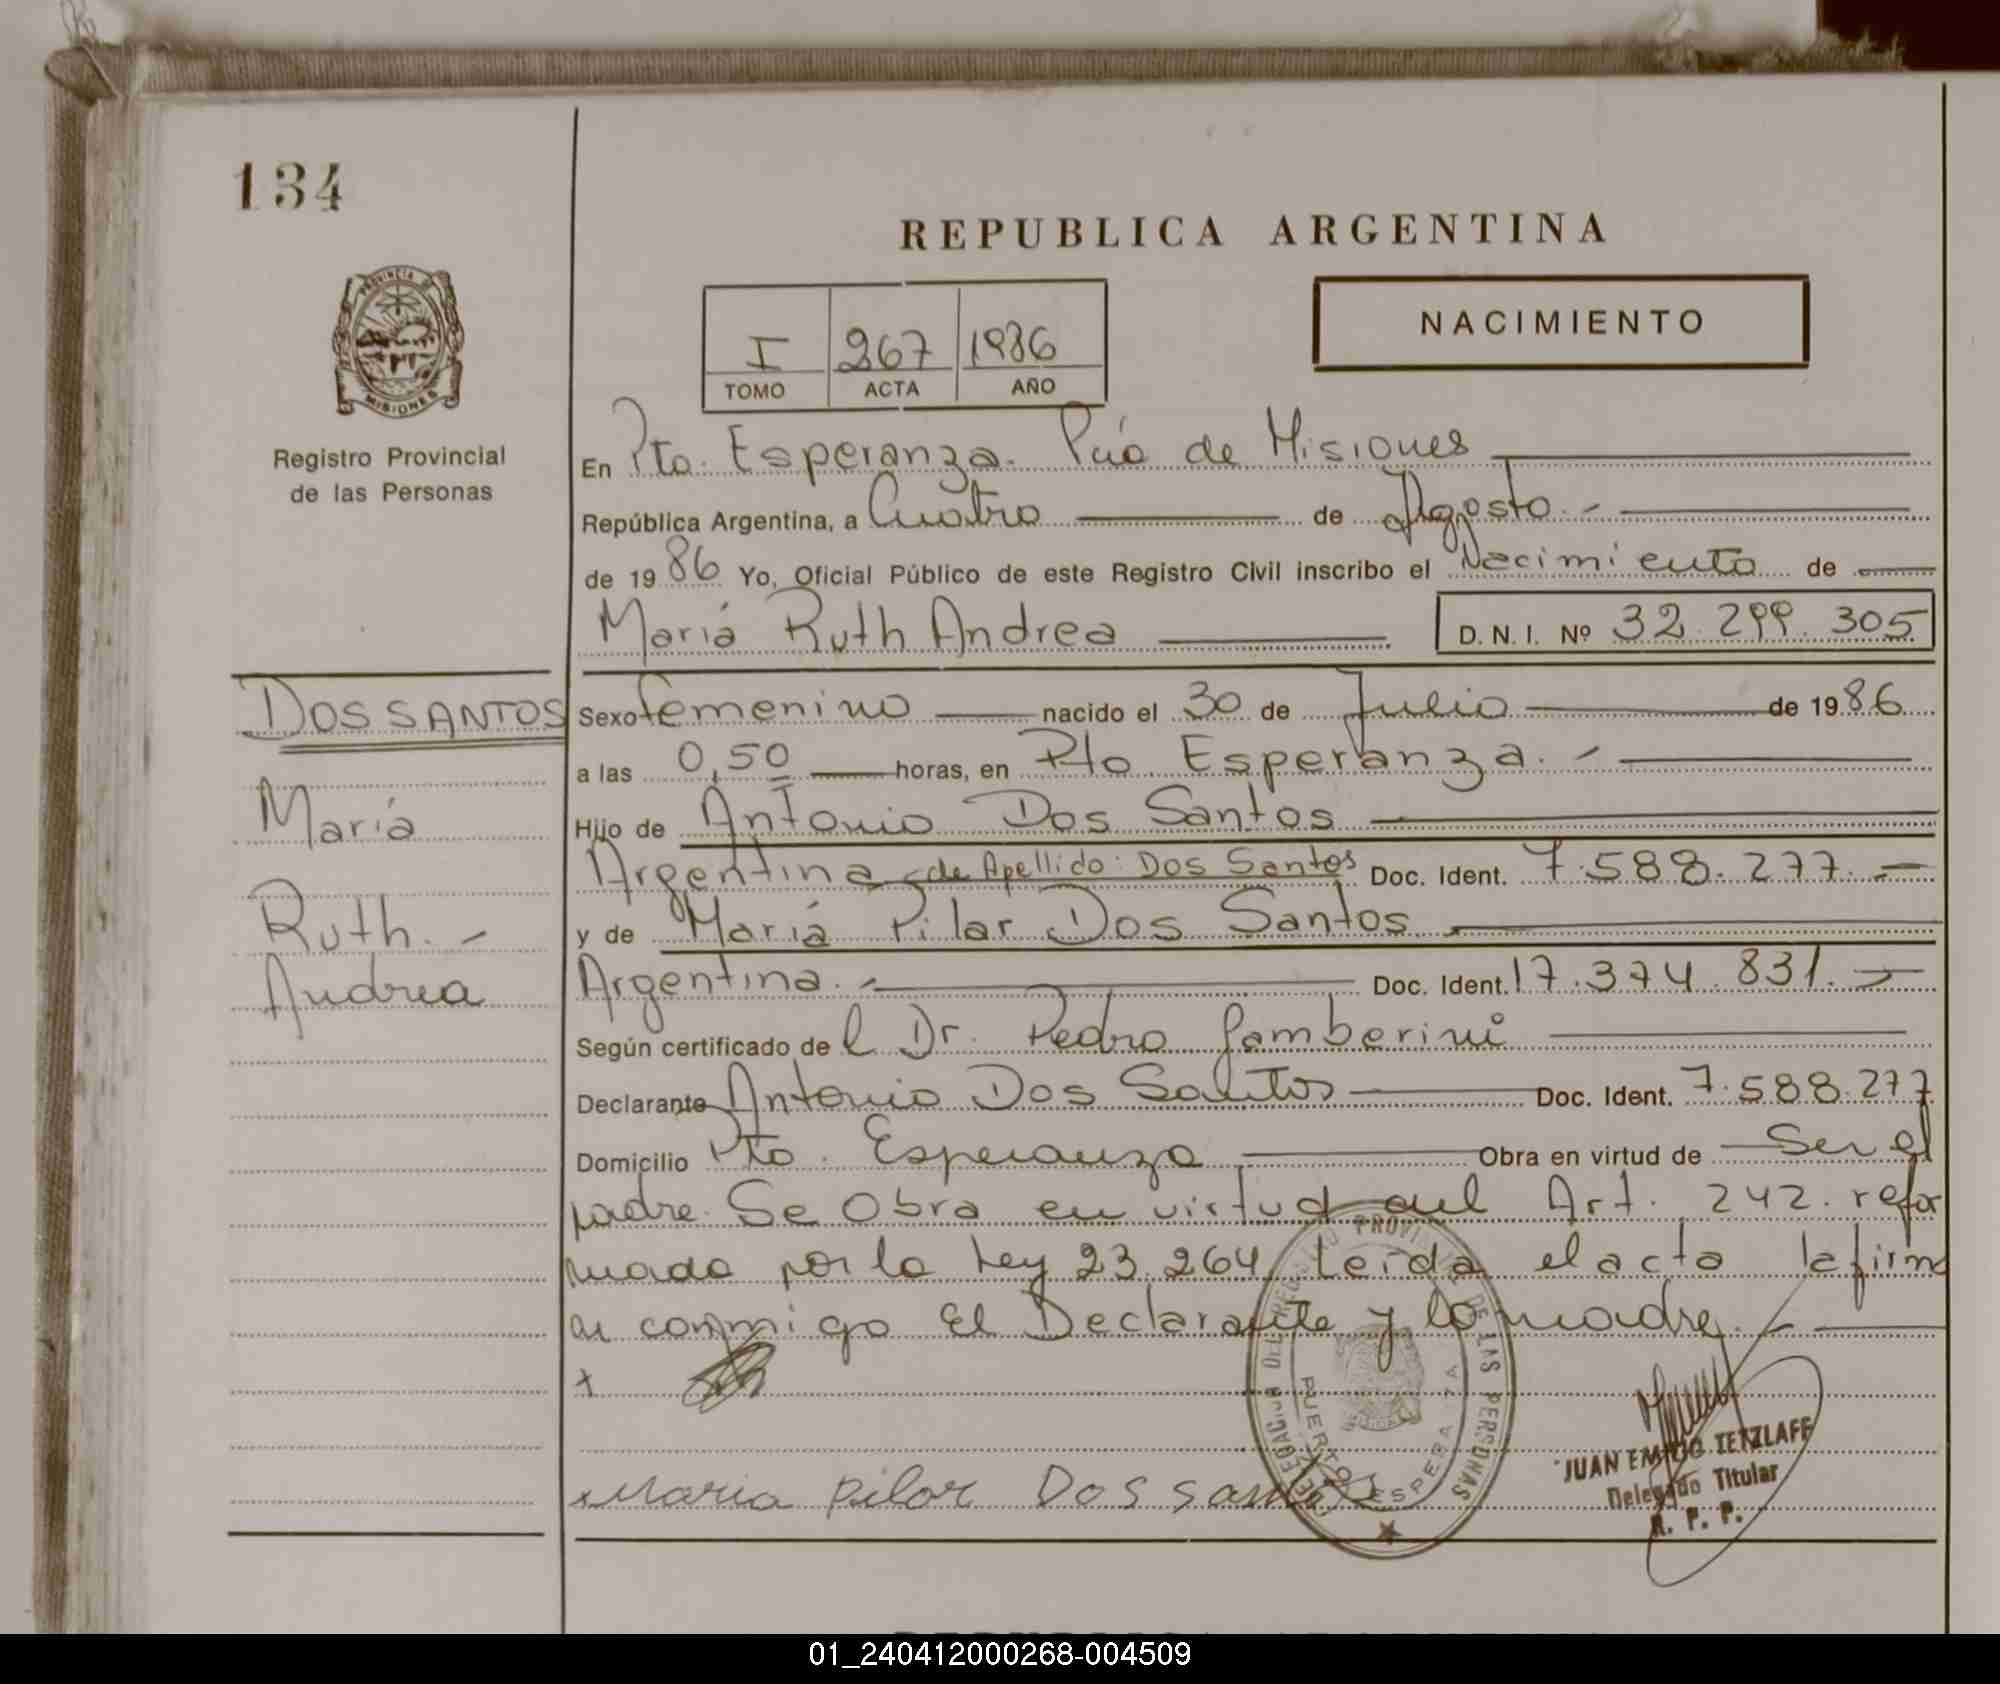 134
REPUBLICA ARGENTINA
PROVINCIA DE
MISIONES
Registro Provincial
de las Personas
I 267 1986
TOMO ACTA AÑO
NACIMIENTO
En Pto. Esperanza. Pcia de Misiones
República Argentina, a Cuatro de Agosto.-
de 1986 Yo, Oficial Público de este Registro Civil inscribo el Nacimiento de
María Ruth Andrea D.N.I. Nº 32.299.305
DOS SANTOS
María
Ruth.-
Andrea
Sexo femenino nacido el 30 de Julio de 1986
a las 0,50 horas, en Pto Esperanza.-
Hijo de Antonio Dos Santos
Argentina de Apellido: Dos Santos Doc. Ident. 7.588.277.-
y de María Pilar Dos Santos
Argentina.- Doc. Ident. 17.374.831.-
Según certificado del Dr. Pedro Gamberini
Declarante Antonio Dos Santos Doc. Ident. 7.588.277
Domicilio Pto. Esperanza Obra en virtud de Ser el
padre. Se Obra en virtud del Art. 242. refor
mada por la Ley 23.264 Leída el acta la firm
an conmigo El Declarante y la madre.-
x
Maria Pilar Dos santos
DELEGACION DEL REGISTRO PROVINCIAL DE LAS PERSONAS
PUERTO ESPERANZA
JUAN EMILIO TETZLAFF
Delegado Titular
R. P. P.
01_240412000268-004509